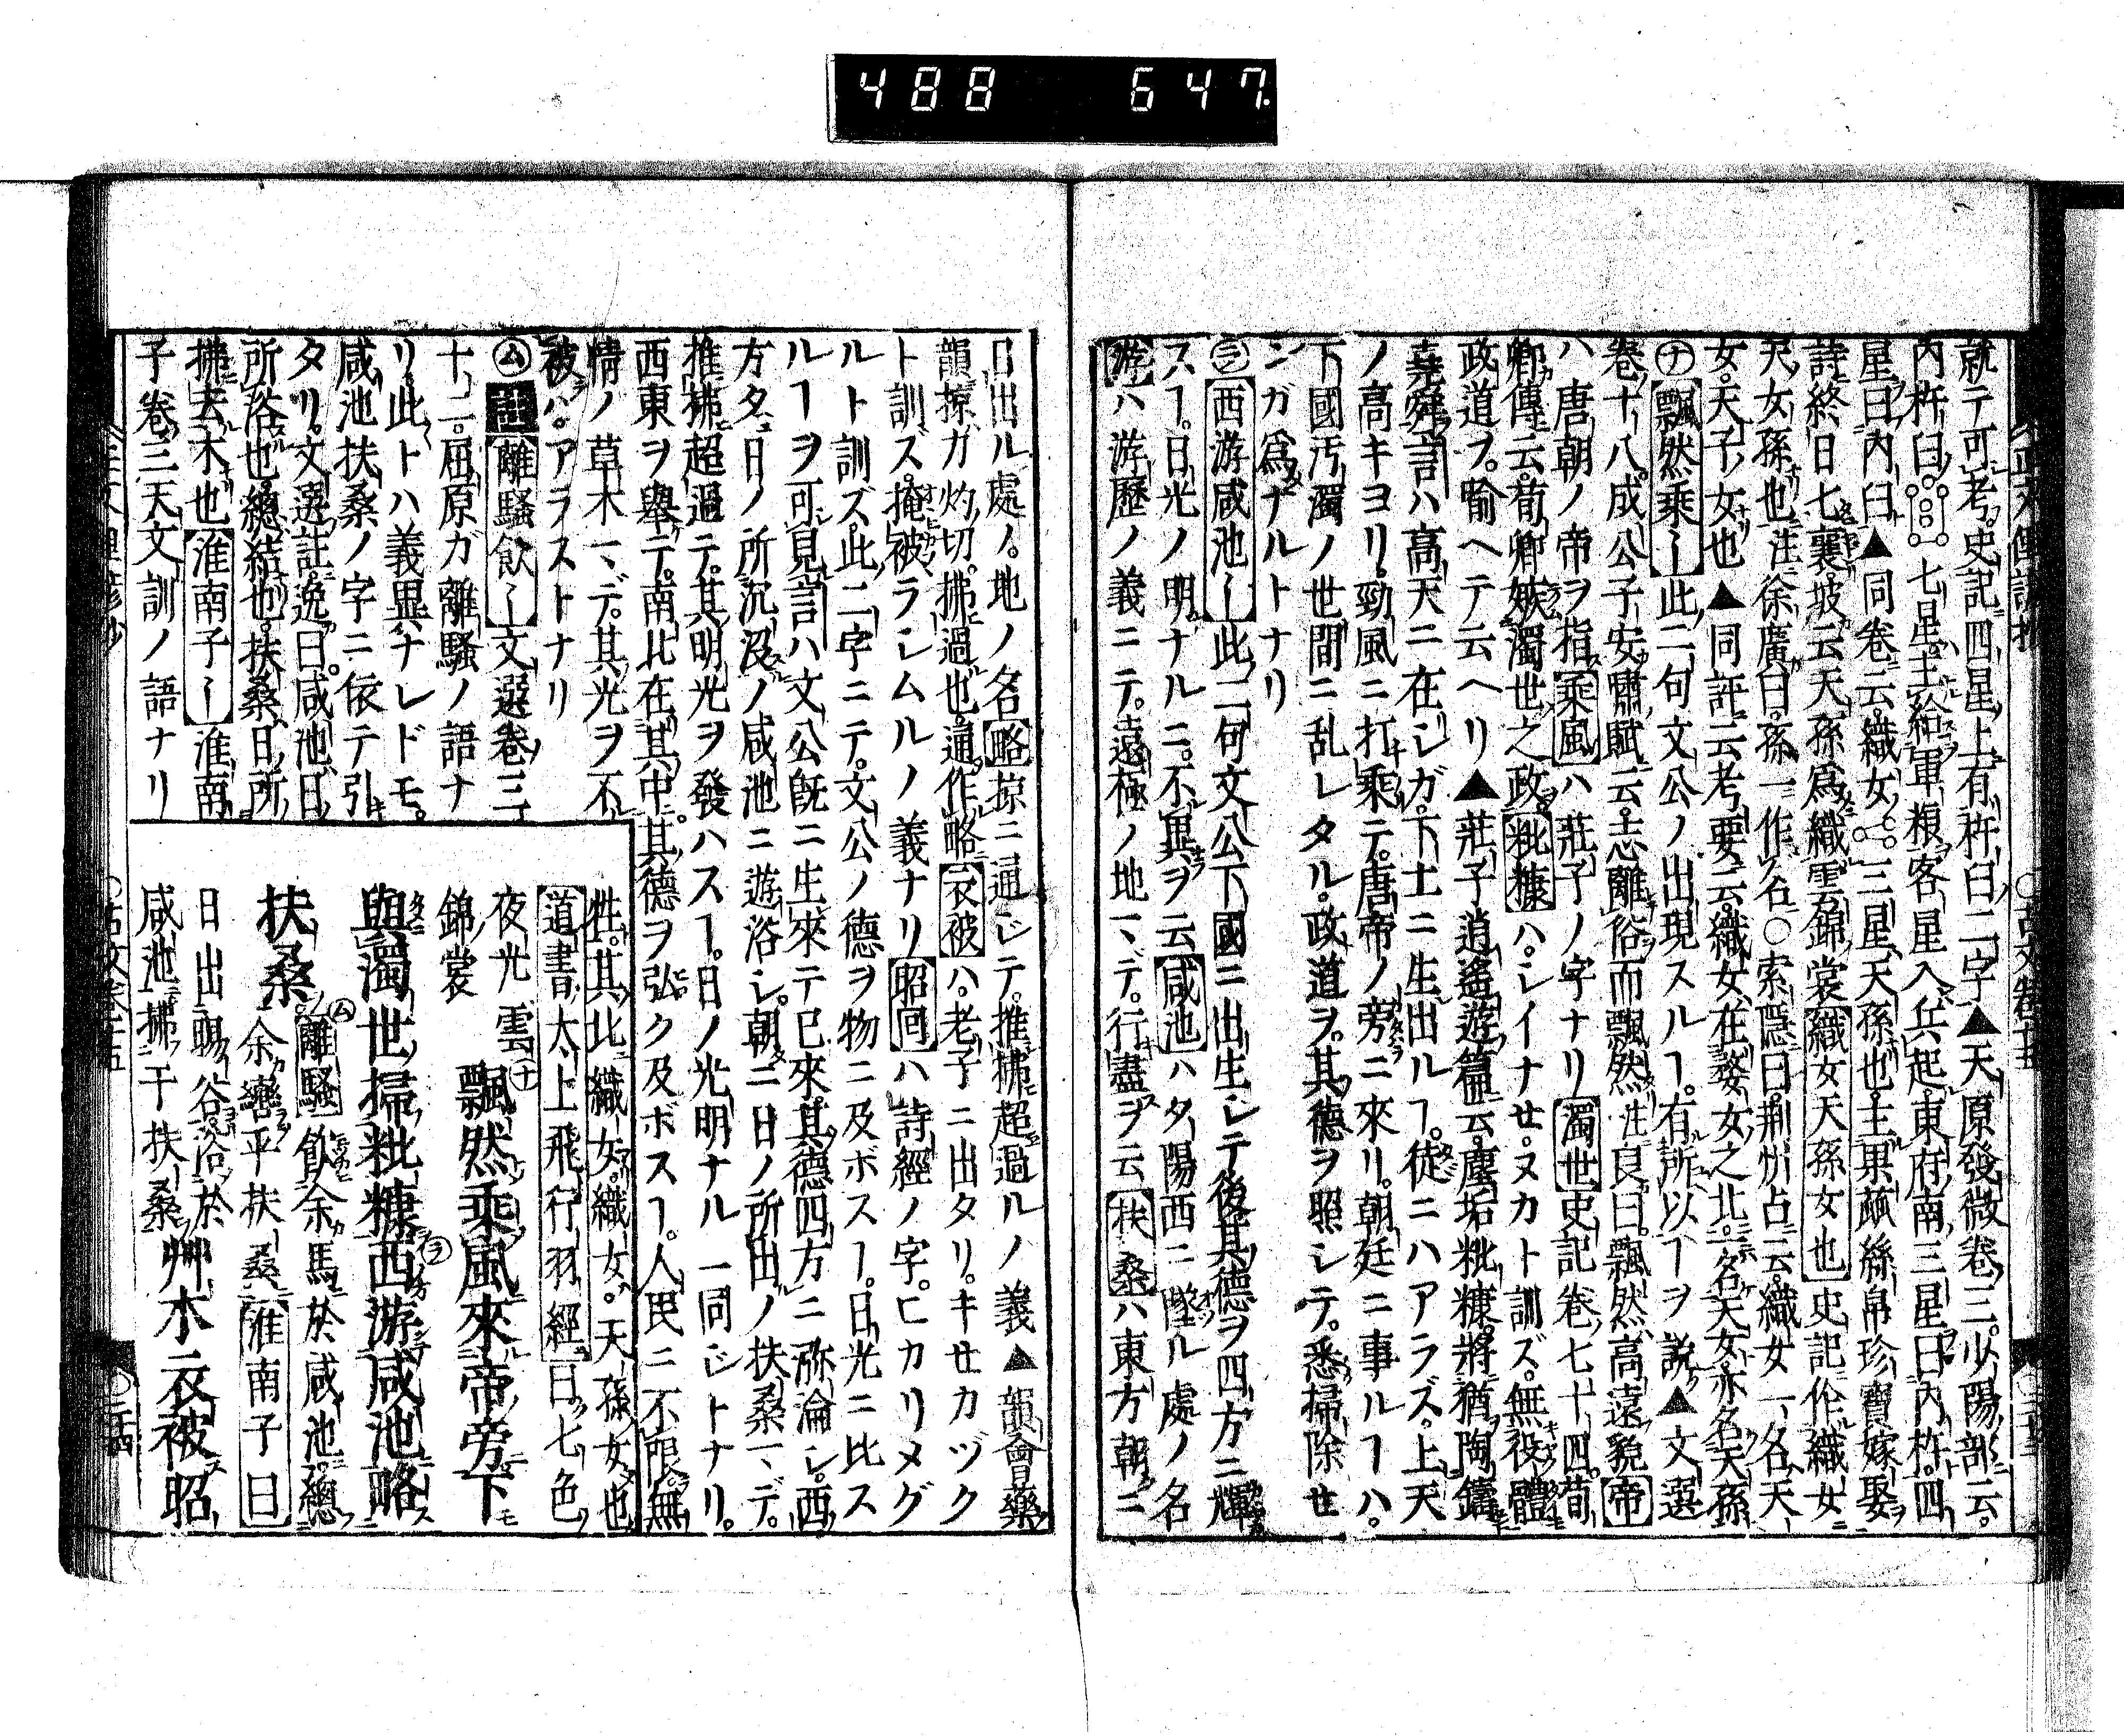 488 647
就テ可考史記四星上有杵臼二字▲天原發微卷三少陽部云
内杵臼一七星主給軍粮客星入兵起東府南三星曰内杵四
星曰内臼▲同卷云織女三星天孫也主果蓏絲帛珍寶嫁娶
詩終日七襄坡云天孫爲織雲錦裳織女天孫女也史記伦織女
天女孫也注徐廣曰孫一作名〇索隱曰荆州占云織女一名天
女天子女也▲同註云考要云織女在婺女之北名天女亦名天孫
ナ飄然乘〡此二句文公ノ出現スルヿ有所以ヿヲ説▲文選
卷十八成公子安嘯賦云志離俗而飄然注良曰飄然高遠貌帝
ハ唐朝ノ帝ヲ指乘風ハ莊子ノ字ナリ濁世史記卷七十四荀
卿傳云荀卿嫉濁世之政粃糠ハシイナセヌカト訓ズ無役體
政道ヲ喩ヘテ云ヘリ▲莊子逍遙遊篇云塵垢粃糠將猶陶鑄
堯舜言ハ高天ニ在シガ下土ニ生出ルヿ徒ニハアラズ上天
ノ高キヨリ勁風ニ打乘テ唐帝ノ旁ニ來リ朝廷ニ事ルヿハ
下國汚濁ノ世間ニ乱レタル政道ヲ其德ヲ照シテ悉掃除セ
ンガ爲ナルトナリ
ラ西游咸池〡此二句文公下國ニ出生シテ後其德ヲ四方ニ輝
スヿ日光ノ明ナルニ不異ヲ云咸池ハ夕陽西ニ墜ル處ノ名
游ハ游歷ノ義ニテ遠極ノ地マデ行盡ヲ云扶桑ハ東方朝ニ
日出ル處ノ地ノ名略掠ニ通ジテ推拂超過ルノ義▲韻會藥
韻掠ガ灼切拂過也通作略衣被ハ老子ニ出タリキセカヅク
ト訓ズ掩被ラシムルノ義ナリ昭回ハ詩經ノ字ヒカリメグ
ルト訓ズ此二字ニテ文公ノ德ヲ物ニ及ボスヿ日光ニ比ス
ルヿヲ可見言ハ文公既ニ生來テ已來其德四方ニ弥淪シ西
方夕日ノ所沉沒ノ咸池ニ遊浴シ朝ニ日ノ所出ノ扶桑マデ
推拂超過テ其明光ヲ發ハスヿ日ノ光明ナル一同ジトナリ
西東ヲ擧テ南北在其中其德ヲ弘ク及ボスヿ人民ニ不限無
情ノ草木マデ其光ヲ不
被ハアラストナリ
ム註離騷飲〡文選卷三
十二屈原ガ離騷ノ語ナ
リ此トハ義異ナレドモ
咸池扶桑ノ字ニ依テ引
タリ文選註逸曰咸池日
所浴也總結也扶桑日所
拂去木也淮南子〡淮南
子卷三天文訓ノ語ナリ
牲其北織女織女天孫女也
道書太上飛行羽經曰七色
夜光雲
錦裳 飄然乘風來帝旁下
與濁世掃粃糠西游咸池略
扶桑 離騷飲余馬於咸池總
余轡乎扶桑淮南子曰
日出暘谷浴於
咸池拂于扶桑 艸木衣被昭